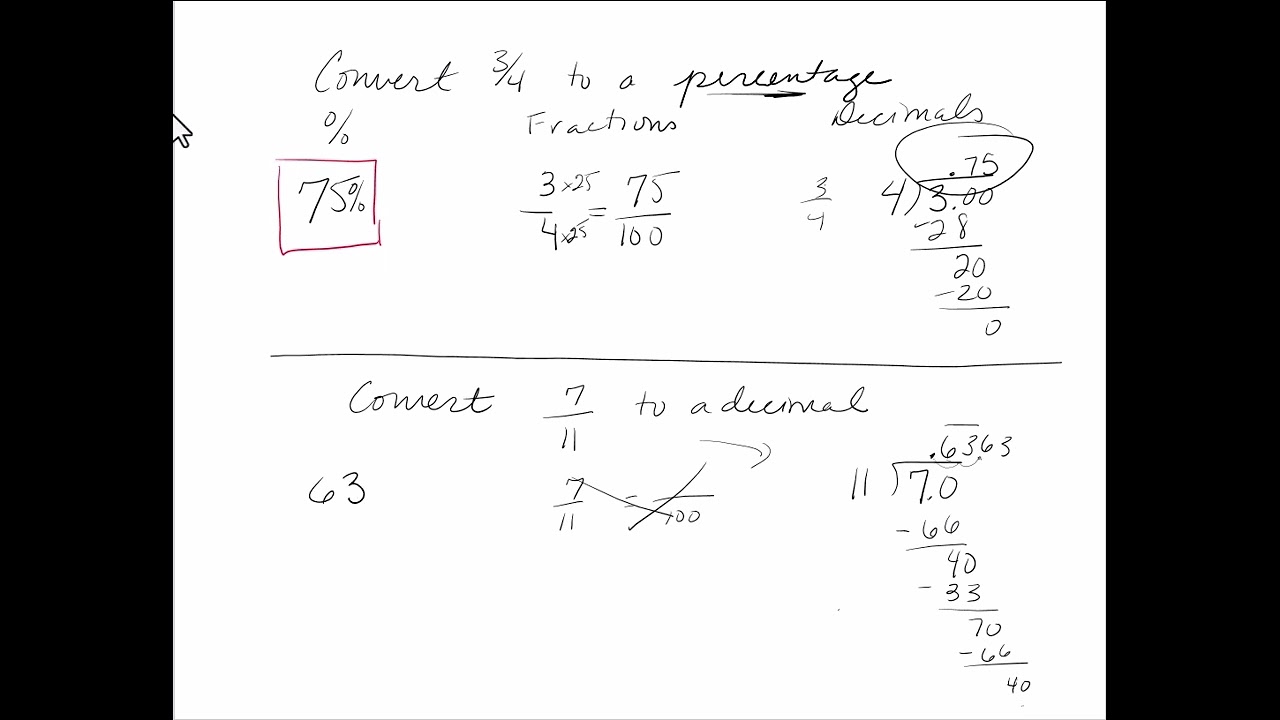 Convert 3/4 to a percentage
% Fractions Decimals
75% 3 ×25 / 4 ×25 = 75/100 3/4
.75
4)3.00
-28
20
-20
0
Convert 7/11 to a decimal
63 7/11 = /100
.6363
11)7.0
-66
40
-33
70
-66
40